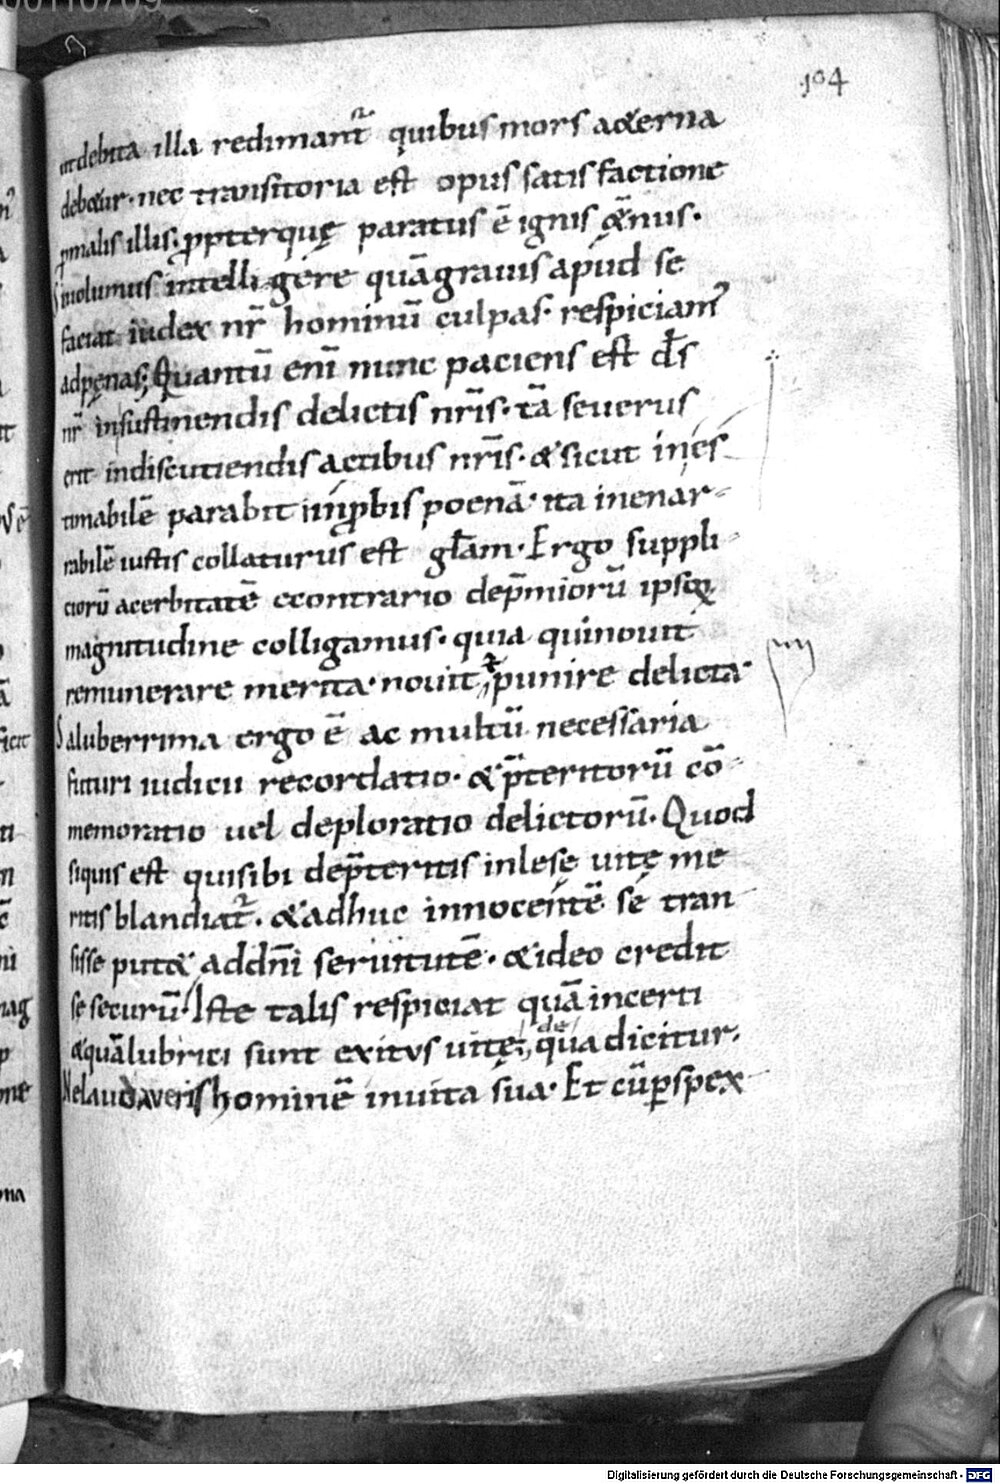 104
ut debita illa redimant᷑ quibus mors aeterna
debetur· nec transitoria est opus satisfactione
ꝓ malis illis· ꝓpterquę paratus ē ignis ęt̄nus·
Si uolumus intelligere quā grauis apud se
faciat iudex nr̄ hominū culpas· respiciam᷒
ad pęnas; Quantū enī nunc paciens est d̄s
nr̄ in sustinendis delictis nr̄is· tā seuerus
erit in discutiendis actibus nr̄is· & sicut inęs
timabilē parabit inꝓbis poenā· ita inenar-
rabilē iustis collaturus est gl̄am· Ergo suppli-
ciorū acerbitatē econtrario de p̄miorū ipsoꝝ
magnitudine colligamus· quia qui nouit
remunerare merita· nouit & punire delicta·
Saluberrima ergo ē ac multū necessaria
futuri iudicii recordatio· & p̄teritorū cō-
memoratio uel deploratio delictorū· Quod
siquis est qui sibi de p̄teritis inlesę uitę me
ritis blandiat᷑· & adhuc innocentē se tran-
sisse putet ad dn̄i seruitutē· & ideo credit
se securū· Iste talis respiciat quā incerti
& quā lubrici sunt exitus uitę; de qua dicitur·
Ne laudaveris hominē in uita sua· Et cū ꝑspex-
Digitalisierung gefördert durch die Deutsche Forschungsgemeinschaft - DFG